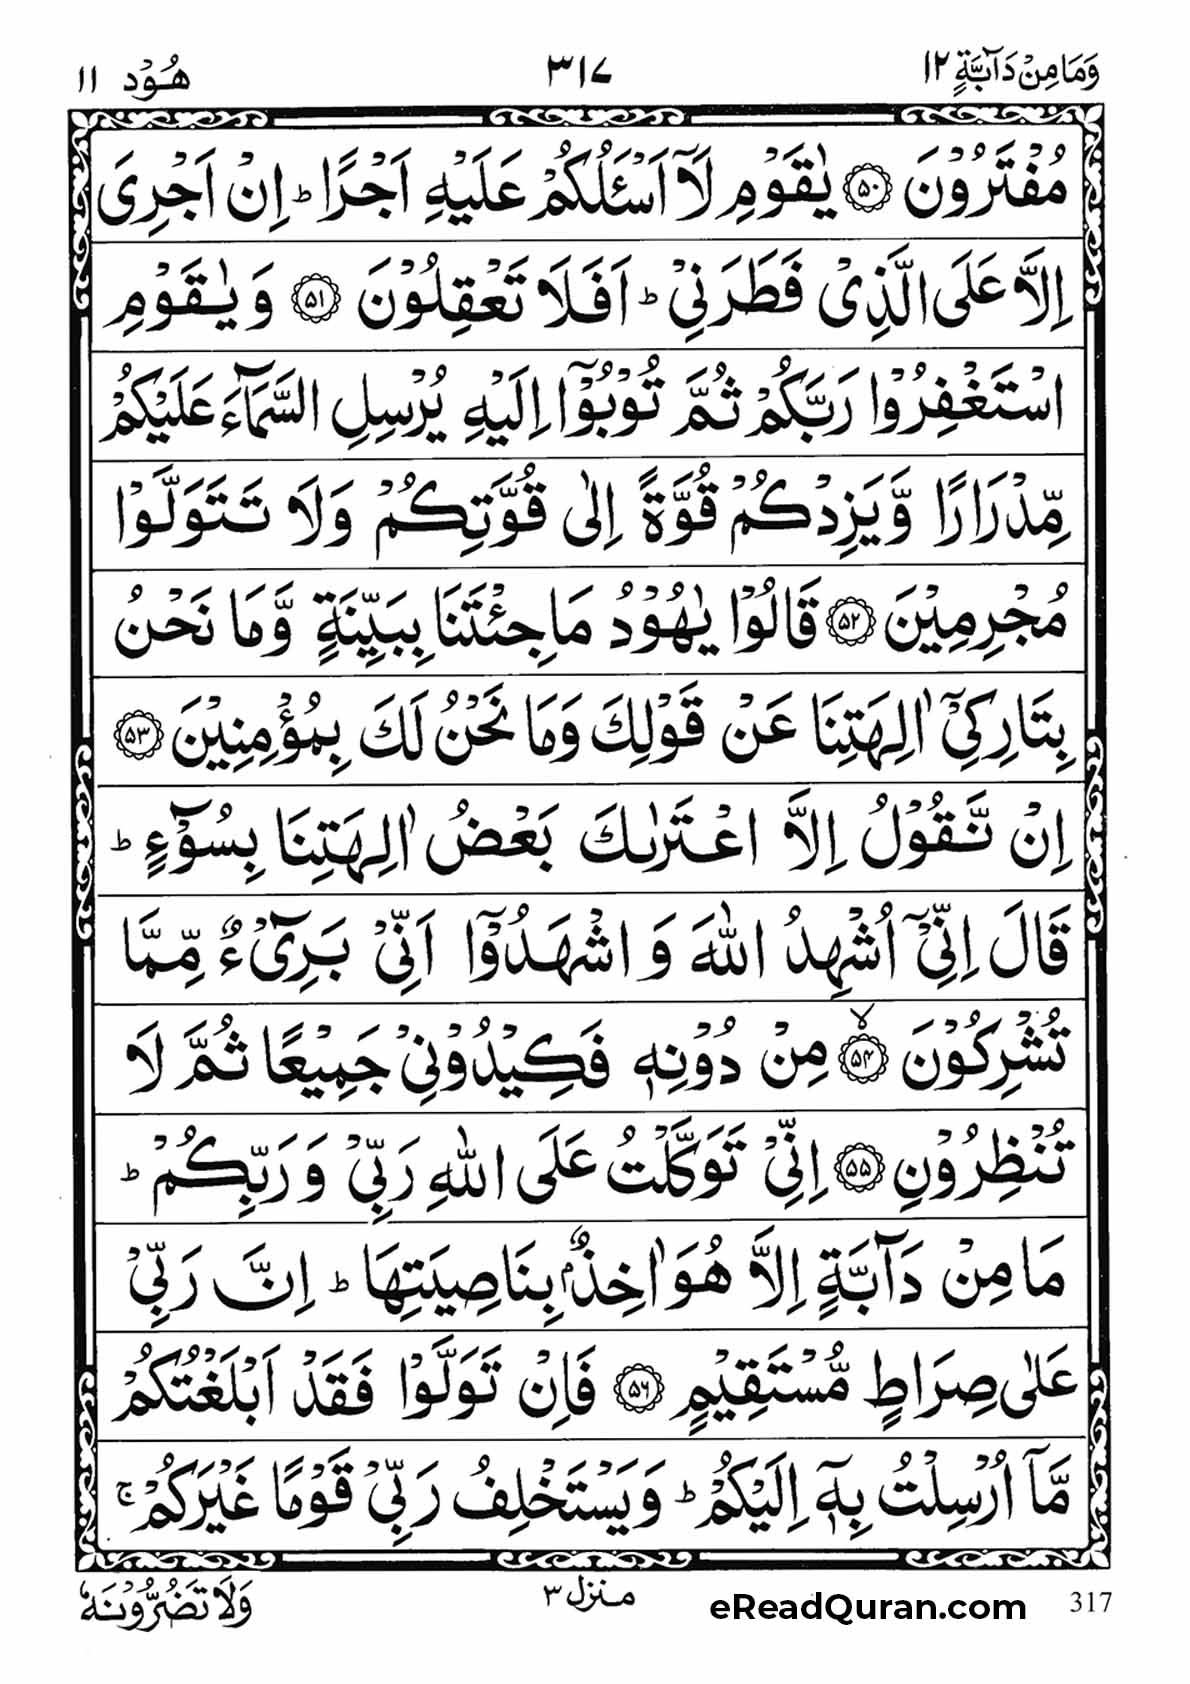 وَمَا مِنْ دَآبَّةٍ ١٢
٣١٧
هُوْد ١١
مُفْتَرُوْنَ ﴿۵۰﴾ يٰقَوْمِ لَآ اَسْـَٔلُكُمْ عَلَيْهِ اَجْرًا ؕ اِنْ اَجْرِىَ
اِلَّا عَلَى الَّذِىْ فَطَرَنِىْ ؕ اَفَلَا تَعْقِلُوْنَ ﴿۵۱﴾ وَيٰقَوْمِ
اسْتَغْفِرُوْا رَبَّكُمْ ثُمَّ تُوْبُوْۤا اِلَيْهِ يُرْسِلِ السَّمَآءَ عَلَيْكُمْ
مِّدْرَارًا وَّيَزِدْكُمْ قُوَّةً اِلٰى قُوَّتِكُمْ وَلَا تَتَوَلَّوْا
مُجْرِمِيْنَ ﴿۵۲﴾ قَالُوْا يٰهُوْدُ مَا جِئْتَنَا بِبَيِّنَةٍ وَّمَا نَحْنُ
بِتَارِكِىْۤ اٰلِهَتِنَا عَنْ قَوْلِكَ وَمَا نَحْنُ لَكَ بِمُؤْمِنِيْنَ ﴿۵۳﴾
اِنْ نَّقُوْلُ اِلَّا اعْتَرٰىكَ بَعْضُ اٰلِهَتِنَا بِسُوْٓءٍ ؕ
قَالَ اِنِّىْۤ اُشْهِدُ اللّٰهَ وَاشْهَدُوْۤا اَنِّىْ بَرِىْٓءٌ مِّمَّا
تُشْرِكُوْنَ ۙ﴿۵۴﴾ مِنْ دُوْنِهٖ فَكِيْدُوْنِىْ جَمِيْعًا ثُمَّ لَا
تُنْظِرُوْنِ ﴿۵۵﴾ اِنِّىْ تَوَكَّلْتُ عَلَى اللّٰهِ رَبِّىْ وَرَبِّكُمْ ؕ
مَا مِنْ دَآبَّةٍ اِلَّا هُوَ اٰخِذٌۢ بِنَاصِيَتِهَا ؕ اِنَّ رَبِّىْ
عَلٰى صِرَاطٍ مُّسْتَقِيْمٍ ﴿۵۶﴾ فَاِنْ تَوَلَّوْا فَقَدْ اَبْلَغْتُكُمْ
مَّاۤ اُرْسِلْتُ بِهٖۤ اِلَيْكُمْ ؕ وَيَسْتَخْلِفُ رَبِّىْ قَوْمًا غَيْرَكُمْ ۚ
317
eReadQuran.com
منزل ٣
وَلَا تَضُرُّوْنَهٗ